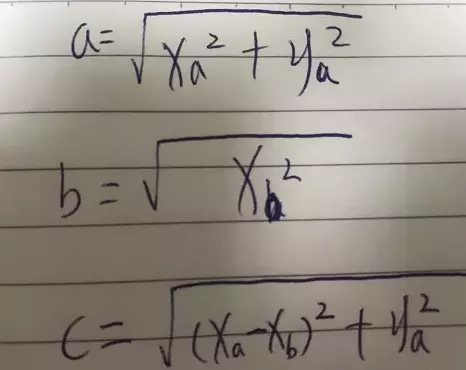 a = √(xₐ² + yₐ²)
b = √(x_b²)
c = √((xₐ - x_b)² + yₐ²)